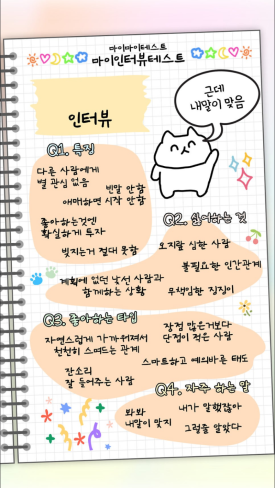 마이마이테스트
마이인터뷰테스트
근데
내말이 맞음
인터뷰
Q1. 특징
다른 사람에게
별 관심 없음
빈말 안함
애매하면 시작 안함
좋아하는것엔
확실하게 투자
빚지는거 절대 못함
Q2. 싫어하는 것
오지랖 심한 사람
불필요한 인간관계
계획에 없던 낯선 사람과
함께하는 상황
무책임한 징징이
Q3. 좋아하는 타입
장점 많은거보다
단점이 적은 사람
자연스럽게 가까워져서
천천히 스며드는 관계
스마트하고 예의바른 태도
잔소리
잘 들어주는 사람
Q4. 자주 하는 말
봐봐
내말이 맞지
내가 말했잖아
그럴줄 알았다